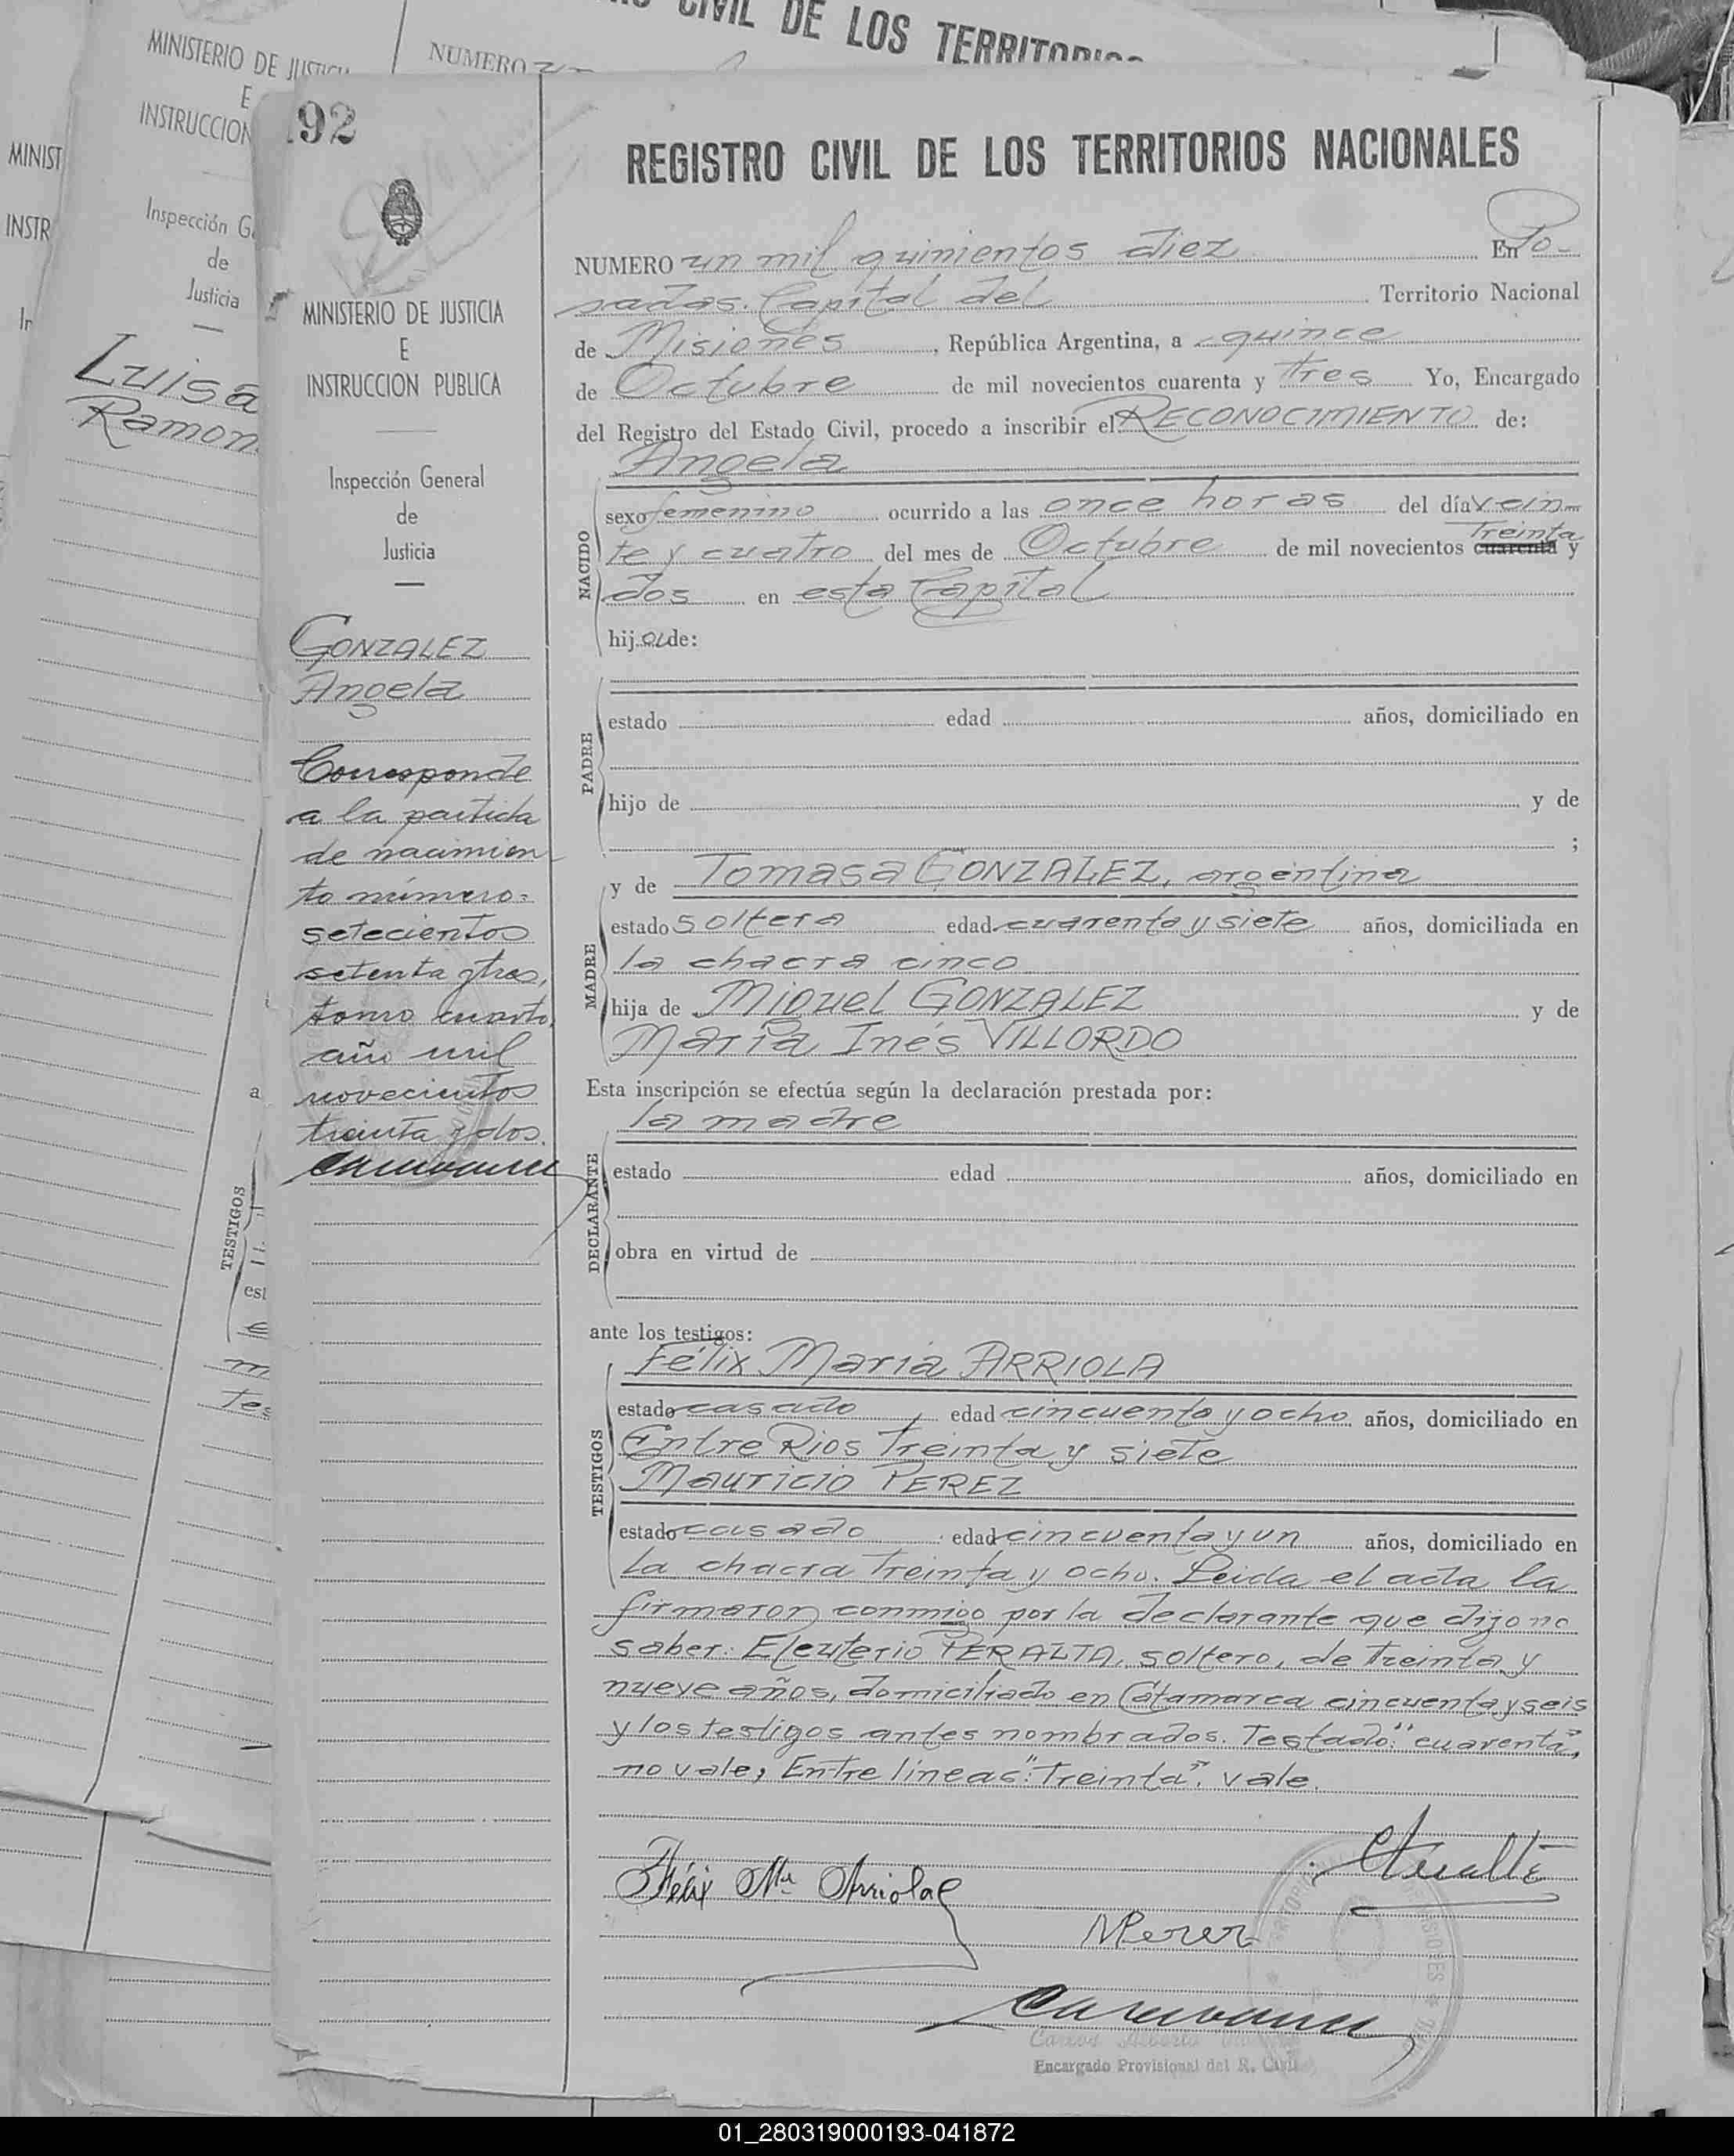 CIVIL DE LOS TERRITORIOS
MINISTERIO DE JUSTICIA
E
INSTRUCCION
NUMERO
MINIST
INSTR
Inspección G
de
Justicia
Luisa
Ramon
TESTIGOS
92
MINISTERIO DE JUSTICIA
E
INSTRUCCION PUBLICA
Inspección General
de
Justicia
GONZALEZ
Angela
Corresponde
a la partida
de nacimien
to número
setecientos
setenta y tres,
tomo cuarto,
año mil
novecientos
treinta y dos.
REGISTRO CIVIL DE LOS TERRITORIOS NACIONALES
NUMERO un mil quinientos diez En Po-
sadas. Capital del Territorio Nacional
de Misiones, República Argentina, a quince
de Octubre de mil novecientos cuarenta y tres Yo, Encargado
del Registro del Estado Civil, procedo a inscribir el RECONOCIMIENTO de:
Angela
NACIDO
sexo femenino ocurrido a las once horas del día vein-
Treinta
te y cuatro del mes de Octubre de mil novecientos cuarenta y
dos en esta Capital
hija de:
PADRE
estado edad años, domiciliado en
hijo de y de
;
MADRE
y de Tomasa GONZALEZ, argentina
estado soltera edad cuarenta y siete años, domiciliada en
la chacra cinco
hija de Miguel GONZALEZ y de
María Inés VILLORDO
Esta inscripción se efectúa según la declaración prestada por:
la madre
DECLARANTE
estado edad años, domiciliado en
obra en virtud de
ante los testigos:
TESTIGOS
Félix María ARRIOLA
estado casado edad cincuenta y ocho años, domiciliado en
Entre Rios Treinta y siete
Mauricio PEREZ
estado casado edad cincuenta y un años, domiciliado en
la chacra treinta y ocho. Leida el acta la
firmaron conmigo por la declarante que dijo no
saber: Eleuterio PERALTA, soltero, de treinta y
nueve años, domiciliado en Catamarca cincuenta y seis
y los testigos antes nombrados. Testado: "cuarenta",
no vale, Entre líneas: "Treinta". vale.
Félix Ma Arriola
MPerez
Carlos Alberto
Encargado Provisional del R. Civil
01_280319000193-041872